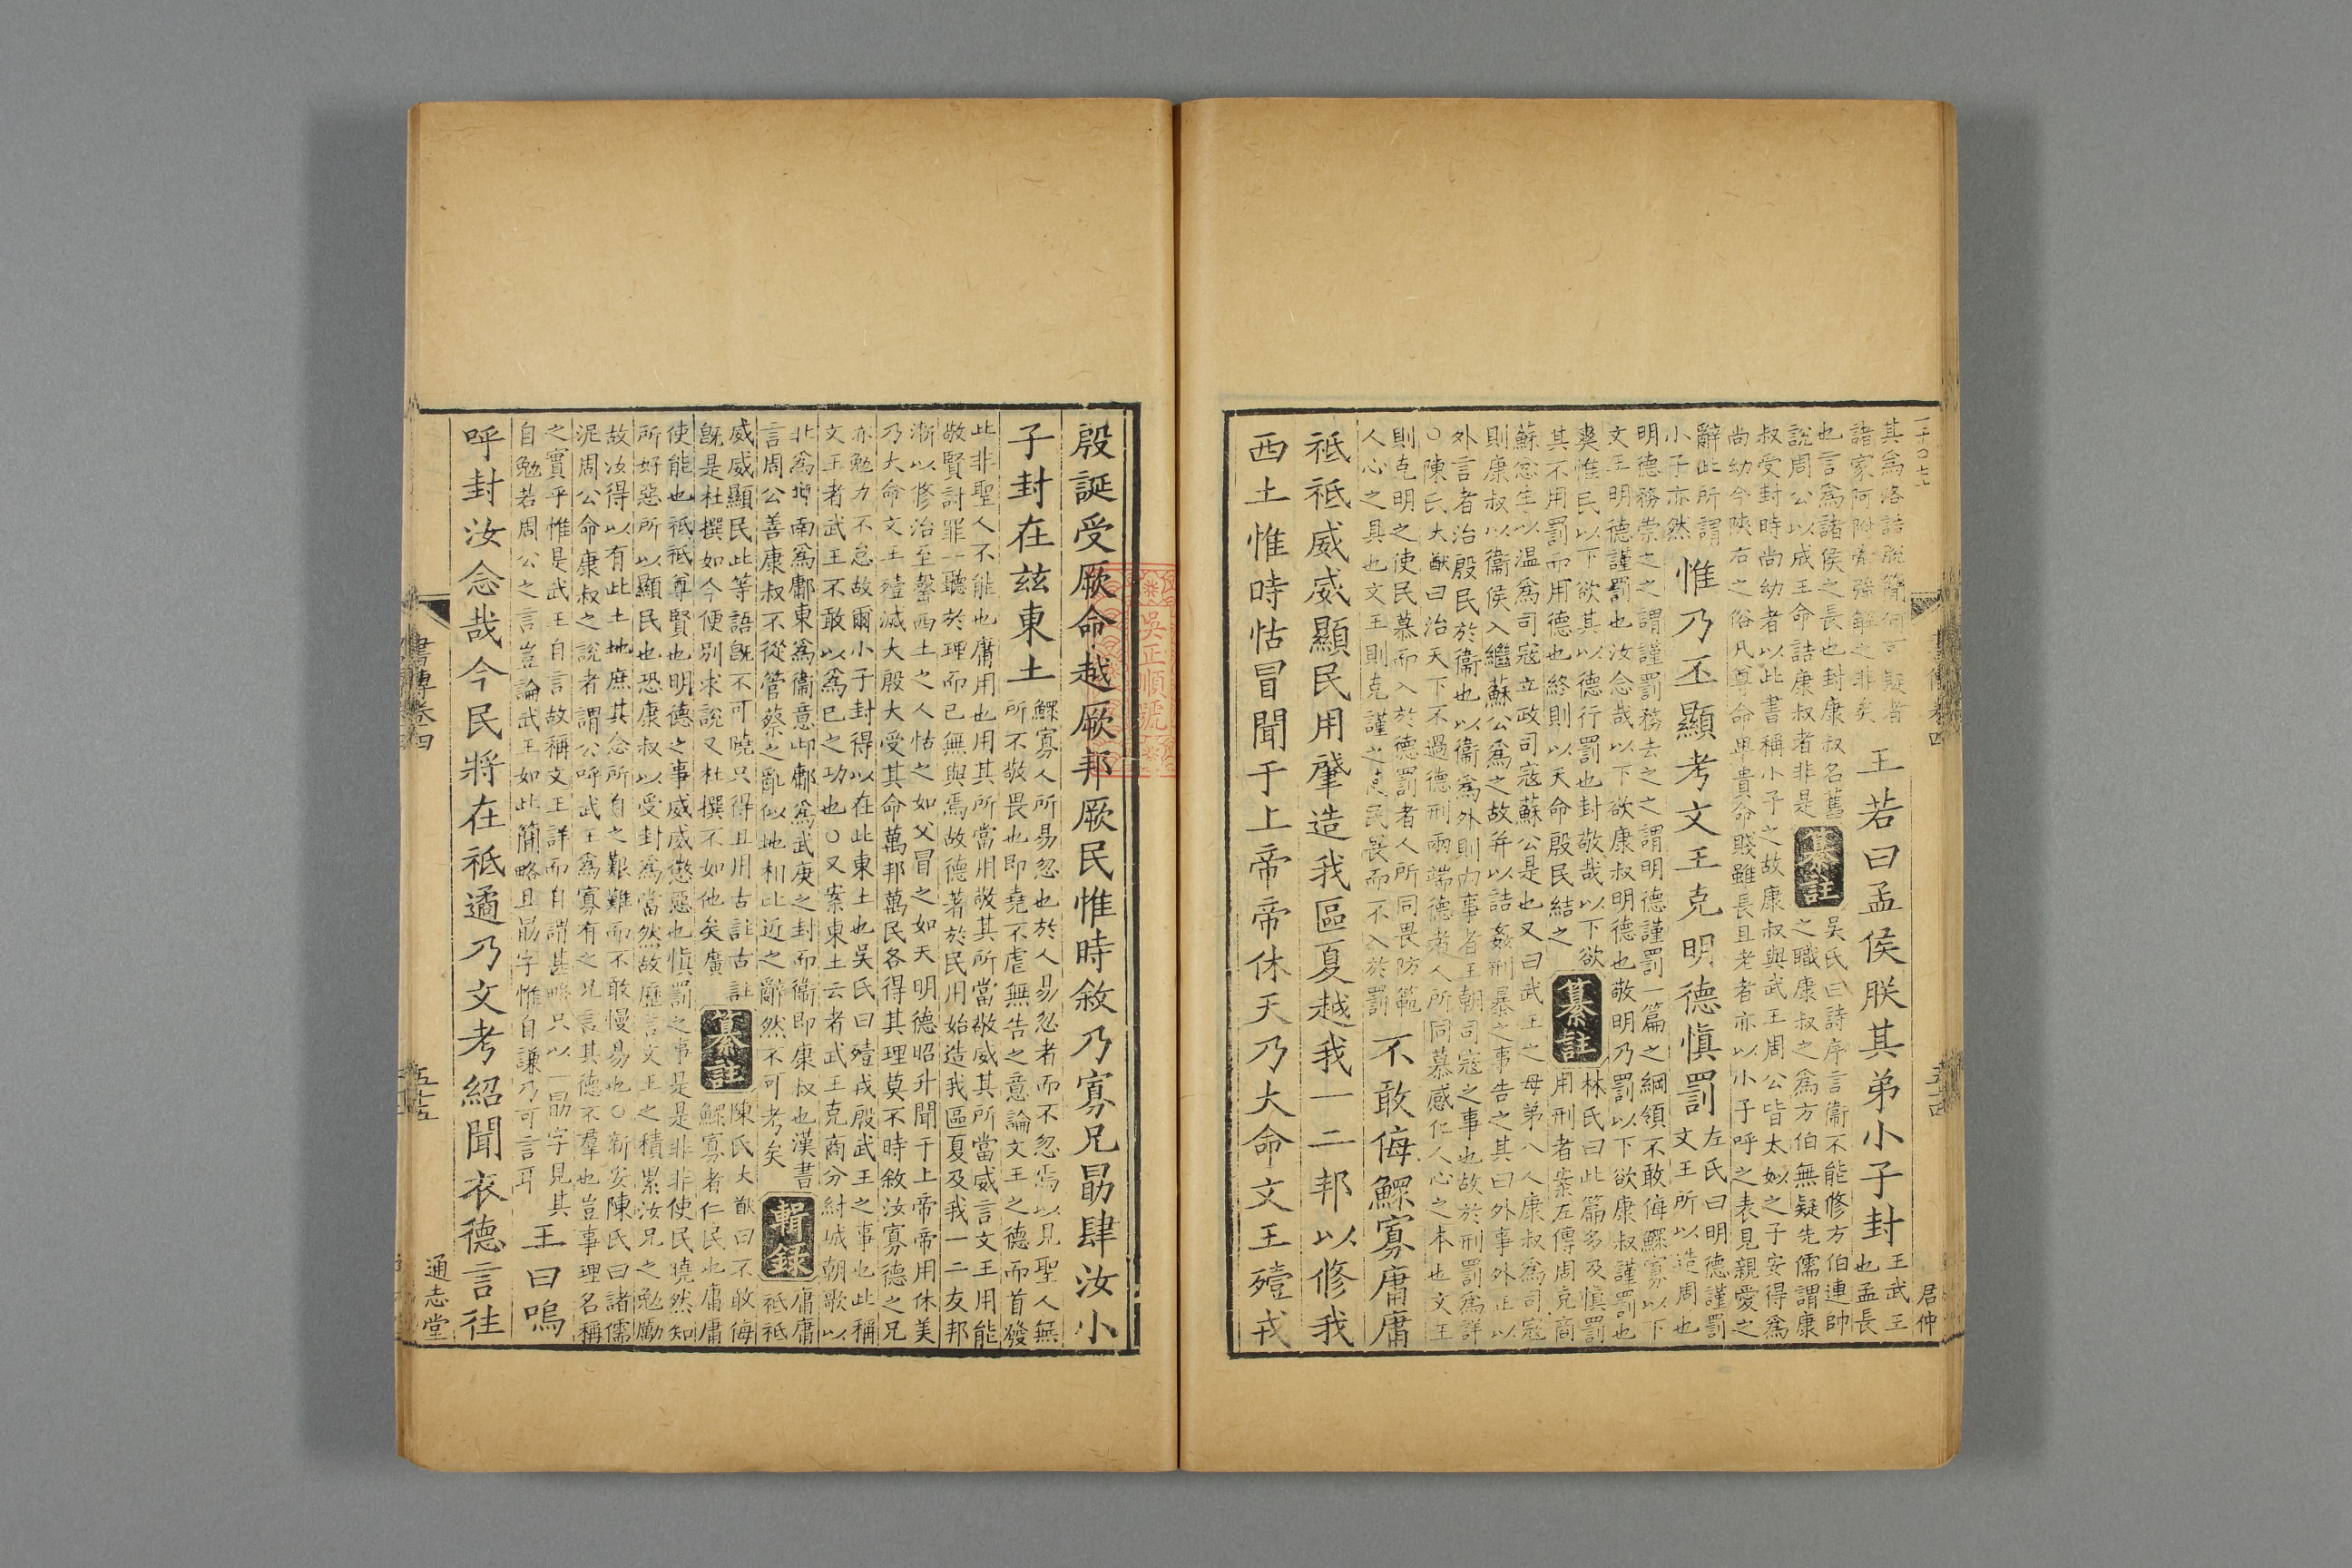 一千〇七七
書傳卷四
五十四
居仲
其爲洛誥脫簡何可疑者
諸家阿附牽強解之非矣
王若曰孟侯朕其弟小子封
王武王
也孟長
也言爲諸侯之長也封康叔名舊
說周公以成王命誥康叔者非是
纂註
吳氏曰詩序言衞不能修方伯連帥
之職康叔之爲方伯無疑先儒謂康
叔受封時尚幼者以此書稱小子之故康叔與武王周公皆太姒之子安得爲
尚幼今陝右之俗凡尊命卑貴命賤雖長且老者亦以小子呼之表見親愛之
辭此所謂
小子亦然
惟乃丕顯考文王克明德慎罰
左氏曰明德謹罰
文王所以造周也
明德務崇之之謂謹罰務去之之謂明德謹罰一篇之綱領不敢侮鰥寡以下
文王明德謹罰也汝念哉以下欲康叔明德也敬明乃罰以下欲康叔謹罰也
爽惟民以下欲其以德行罰也封敬哉以下欲
其不用罰而用德也終則以天命殷民結之
纂註
林氏曰此篇多及慎罰
用刑者案左傳周克商
蘇忿生以温爲司寇立政司寇蘇公是也又曰武王之母弟八人康叔爲司寇
則康叔以衞侯入繼蘇公爲之故并以詰姦刑暴之事告之其曰外事外正以
外言者治殷民於衞也以衞爲外則内事者王朝司寇之事也故於刑罰爲詳
○陳氏大猷曰治天下不過德刑兩端德者人所同慕感仁人心之本也文王
則克明之使民慕而入於德罰者人所同畏防範
人心之具也文王則克謹之民畏而不入於罰
不敢侮鰥寡庸庸
祗祗威威顯民用肇造我區夏越我一二邦以修我
西土惟時怙冒聞于上帝帝休天乃大命文王殪戎
殷誕受厥命越厥邦厥民惟時敘乃寡兄勗肆汝小
子封在茲東土
鰥寡人所易忽也於人易忽者而不忽焉以見聖人無
所不敬畏也即堯不虐無告之意論文王之德而首發
此非聖人不能也庸用也用其所當用敬其所當敬威其所當威言文王用能
敬賢討罪一聽於理而已無與焉故德著於民用始造我區夏及我一二友邦
漸以修治至罄西土之人怙之如父冒之如天明德昭升聞于上帝帝用休美
乃大命文王殪滅大殷大受其命萬邦萬民各得其理莫不時敘汝寡德之兄
亦勉力不怠故爾小子封得以在此東土也吳氏曰殪戎殷武王之事也此稱
文王者武王不敢以爲己之功也○又案東土云者武王克商分紂城朝歌以
北爲邶南爲鄘東爲衞意邶鄘爲武庚之封而衞即康叔也漢書
言周公善康叔不從管蔡之亂似地相比近之辭然不可考矣
輯錄
庸庸
祗祗
威威顯民此等語旣不可曉只得且用古註古註
旣是杜撰如今便別求說又杜撰不如他矣廣
纂註
陳氏大猷曰不敢侮
鰥寡者仁民也庸庸
使能也祗祗尊賢也明德之事威威懲惡也慎罰之事是是非非使民曉然知
所好惡所以顯民也恐康叔以受封爲當然故歷言文王之積累汝兄之勉勵
故汝得以有此土地庶其念所自之艱難而不敢慢易也○新安陳氏曰諸儒
泥周公命康叔之說者謂公呼武王爲寡有之兄言其德不羣也豈事理名稱
之實乎惟是武王自言故稱文王詳而自謂甚略只以一勗字見其
自勉若周公之言豈論武王如此簡略且勗字惟自謙乃可言耳
王曰嗚
呼封汝念哉今民將在祗遹乃文考紹聞衣德言往
書傳卷四
五十五
通志堂
吳正順號